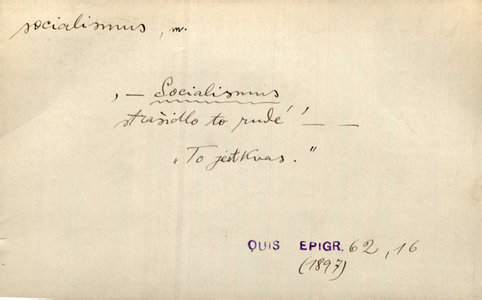 socialismus, m.
‚ — Socialismus
strašidlo to rudé ’ — —
„To jest Kvas.“
QUIS EPIGR. 62, 16
(1897)